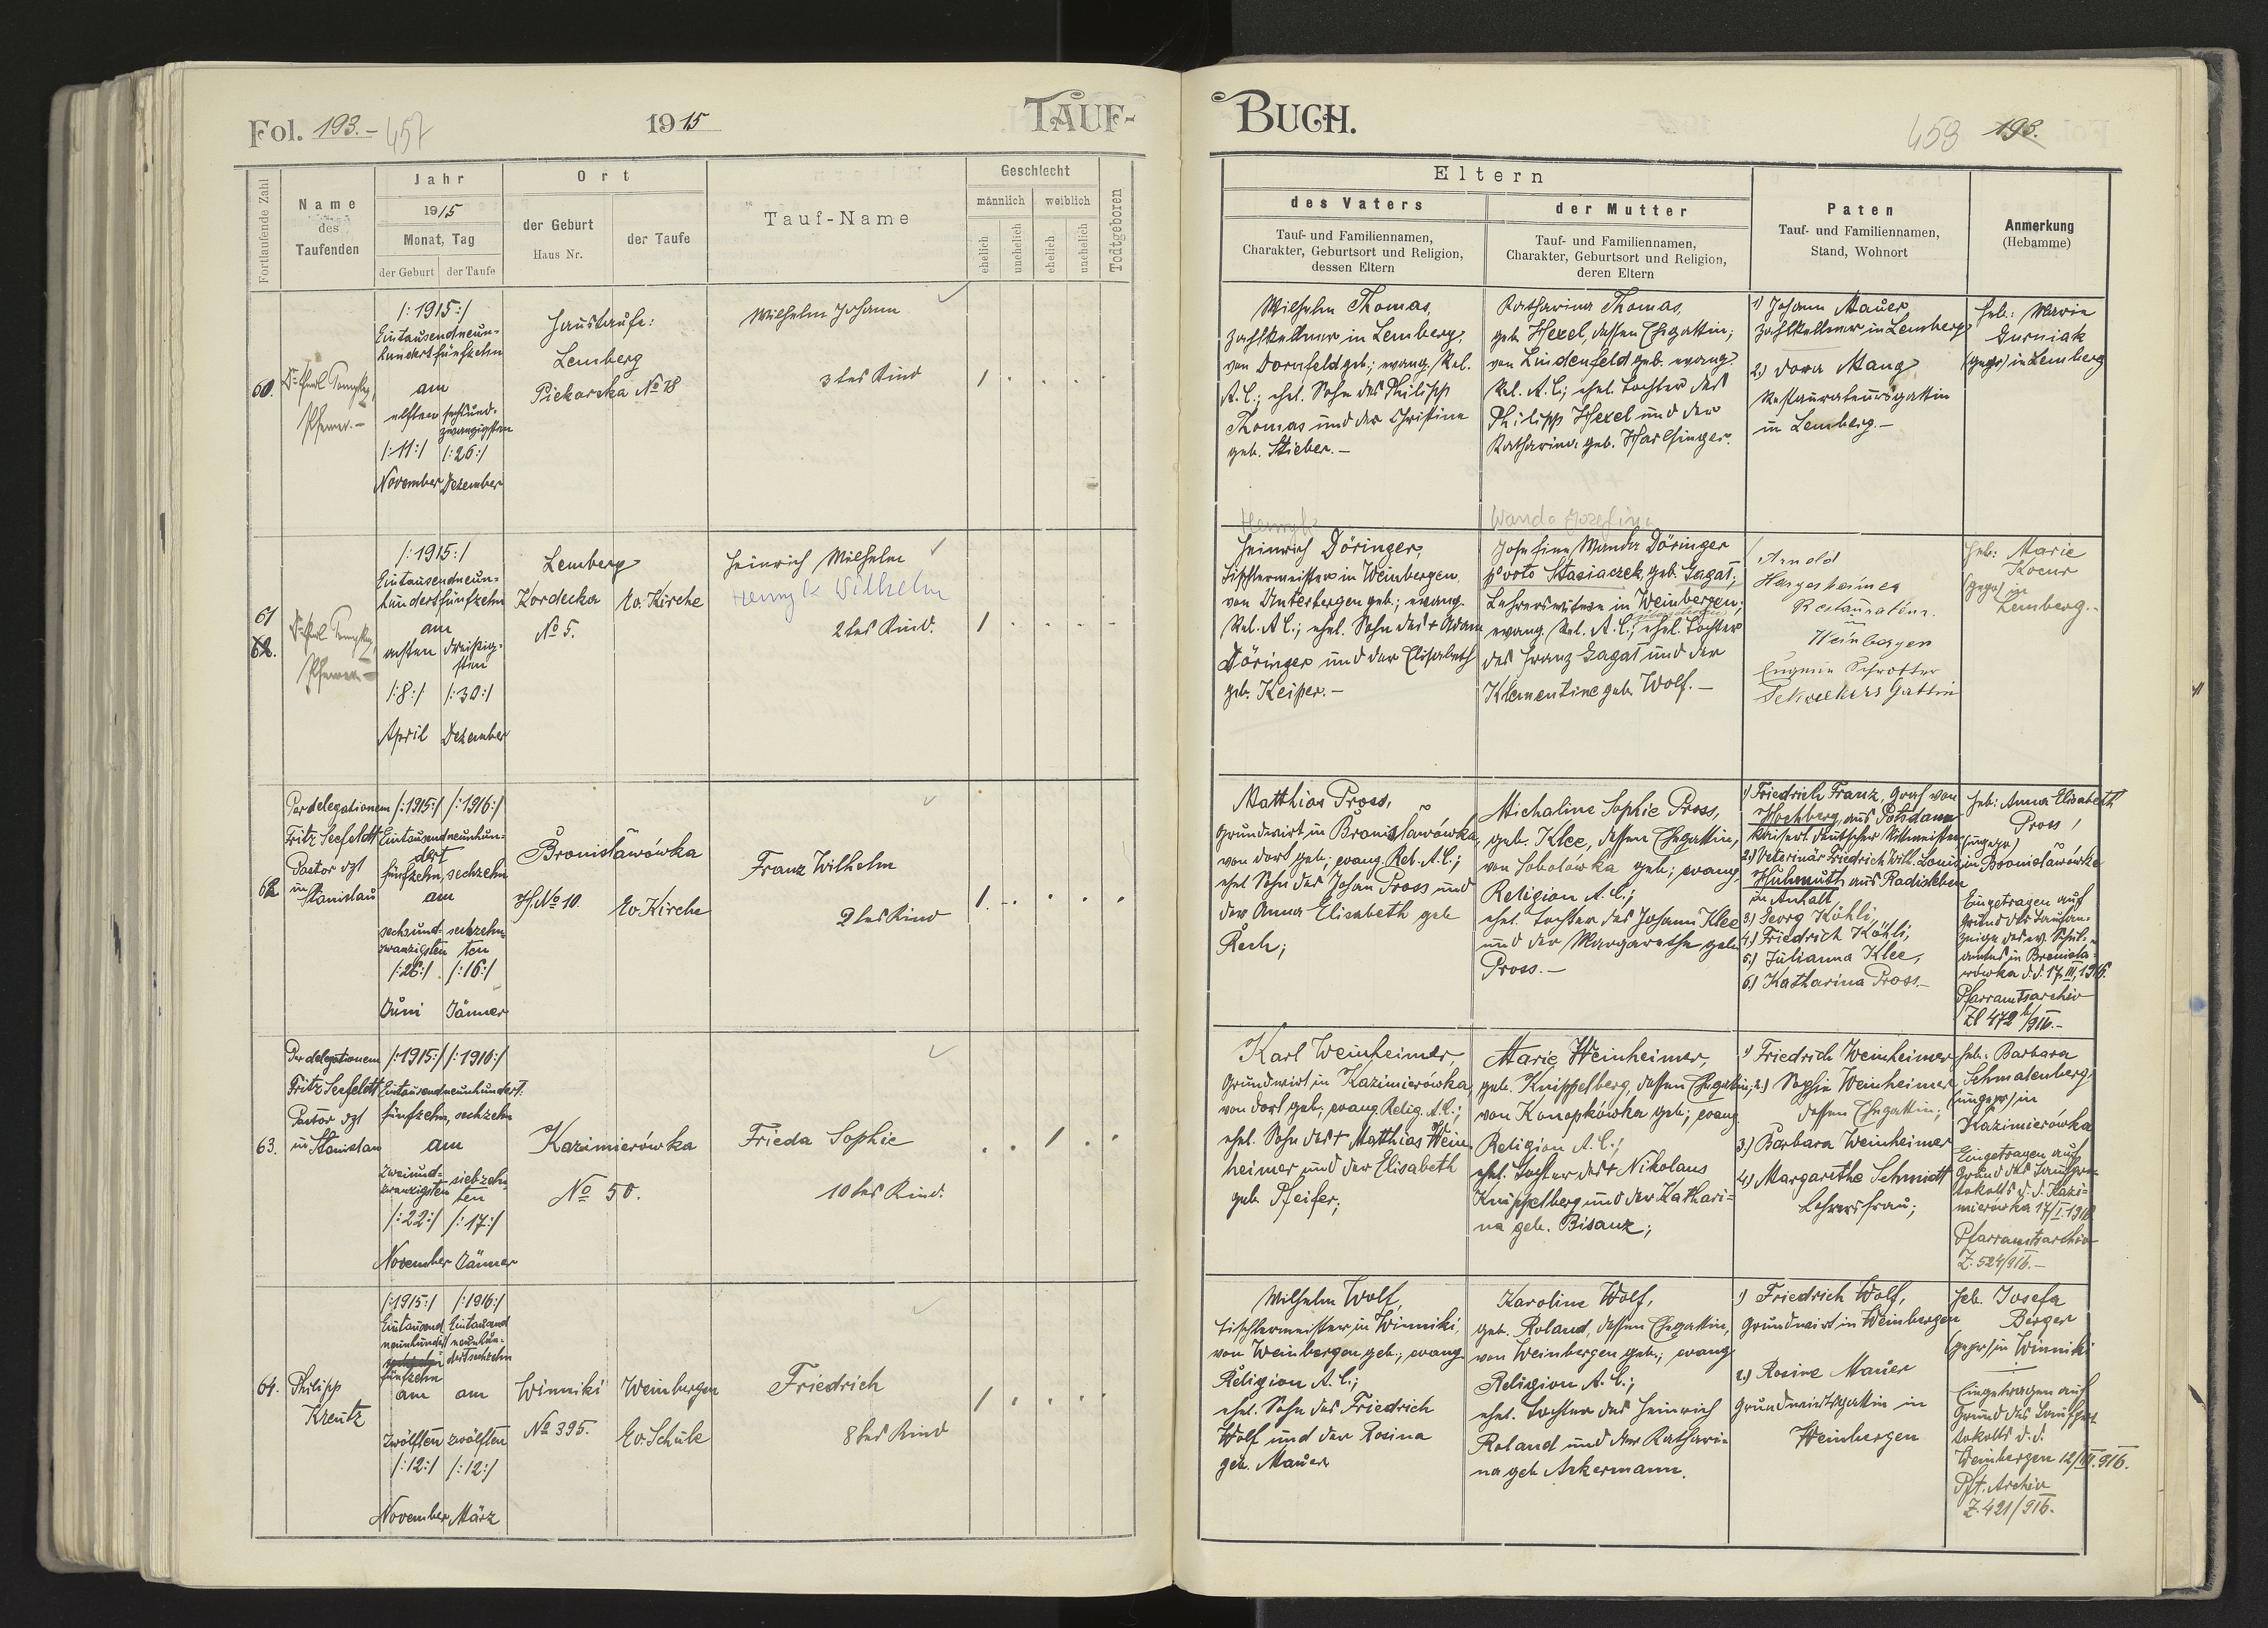 Fol. 193.- 457
1915
TAUF-
Fortlaufende Zahl
Name
des
Taufenden
Jahr
1915
Monat, Tag
der Geburt
der Taufe
Ort
der Geburt
Haus Nr.
der Taufe
Tauf-Name
Geschlecht
männlich
weiblich
ehelich
unehelich
ehelich
unehelich
Todtgeboren
60.
Pfarrer.-
/:1915:/
Eintausendneun-
hundertfünfzehn
am
elften
sechsund-
zwanzigsten
/:11:/ /:26:/
November Dezember
Haustaufe:
Lemberg
Piekarska No 18
Wilhelm Johann
3tes Kind
1
61
62.
Pfarrer.-
/:1915:/
Eintausendneun-
hundertfünfzehn
am
achten
dreißig-
sten
/:8:/ /:30:/
April Dezember
Lemberg
Kordecka
No 5.
Ev. Kirche
Heinrich Wilhelm
Henryk Wilhelm
2tes Kind.
1
62
Per delegationem
Fritz Seefeldt
Pastor dzt
in
Stanislau
/:1915:/ /:1916:/
Eintausendneunhun-
dert
fünfzehn, sechzehn
am
sechsund-
zwanzigsten
sechzehn-
ten
/:26:/ /:16:/
Juni Jänner
Bronisławówka
H. No 10.
Ev. Kirche
Franz Wilhelm
2tes Kind
1
63.
Per delegationem
Fritz Seefeldt
Pastor dzt
in Stanislau
/:1915:/ /:1916:/
Eintausendneunhundert.
fünfzehn, sechzehn
am
zweiund-
zwanzigsten
siebzehn-
ten
/:22:/ /:17:/
November Jänner
Kazimierówka
No 50.
Frieda Sophie
10tes Kind.
1
64.
Philipp
Kreutz
/:1915:/ /:1916:/
Eintausend Eintausend
neunhundert neunhun-
dertsechzehn
fünfzehn
am am
zwölften zwölften
/:12:/ /:12:/
November März
Winniki
No 395.
Weinbergen
Ev. Schule
Friedrich
8tes Kind
1
BUCH.
458 193.
Eltern
des Vaters
Tauf- und Familiennamen,
Charakter, Geburtsort und Religion,
dessen Eltern
der Mutter
Tauf- und Familiennamen,
Charakter, Geburtsort und Religion,
deren Eltern
Paten
Tauf- und Familiennamen,
Stand, Wohnort
Anmerkung
(Hebamme)
Wilhelm Thomas,
Zahlkellner in Lemberg,
von Dornfeld geb.; evang. Rel.
A.C.; ehel. Sohn des Philipp
Thomas und der Christine
geb. Stieber.-
Katharina Thomas,
geb. Hexel, dessen Ehegattin;
von Lindenfeld geb. evang.
Rel. A.C; ehel. Tochter des
Philipp Hexel und der
Katharina geb. Harlfinger.
1) Johann Mauer
Zahlkellner in Lemberg
2.) Dora Mang
Restaurateursgattin
in Lemberg.-
Heb.: Marie
Gurniak
(gepr) in Lemberg
Henryk
Heinrich Döringer,
Tischlermeister in Weinbergen,
von Unterbergen geb.; evang.
Rel. A.C; ehel. Sohn des + Adam
Döringer und der Elisabeth
geb. Keiper.-
Wanda Jozefina
Josefine Wanda Döringer
pvoto Stasiaczek, geb. Gagat;
Lehrerswitwe in Weinbergen;
evang. Rel. A.C.; ehel. Tochter
des Franz Gagat und der
Klementine geb. Wolf.-
Arnold
Hargesheimer
Restaurateur.
in
Weinbergen
Eugenie Schrotter
Gattin
Heb: Marie
Kocur
(gepr) in
Lemberg.-
Matthias Pross,
Grundwirt in Bronisławówka,
von dort geb; evang. Rel. A.C.;
ehel Sohn des Johan Pross und
der Anna Elisabeth geb
Rech;
Michaline Sophie Pross,
geb. Klee, dessen Ehegattin,
von Sobolówka geb; evang.
Religion A.C.;
ehel. Tochter des Johann Klee
und der Margarethe geb.
Pross.-
1) Friedrich Franz, Graf von
Hochberg, aus Potsdam
kaiserl. deutscher Rittmeister
2.) Veterinär Friedrich Wilh. Louis
aus Radisleben
in Anhalt
3.) Georg Köhli,
4.) Friedrich Köhli,
5.) Julianna Klee,
6.) Katharina Pross.-
Heb: Anna Elisabeth
Pross,
(ungepr)
in Bronisławówka
Eingetragen auf
Grund des Taufan-
zeige des ev. Schul-
amtes in Bronisła-
wówka d.d. 17.III.1916.
Pfarramtsarchiv
Zl 472/916.-
Karl Weinheimer,
Grundwirt in Kazimierówka,
von dort geb; evang. Relig. A.C.;
ehel. Sohn des + Matthias Wein-
heimer und der Elisabeth
geb. Pfeifer;
Marie Weinheimer,
geb. Knippelberg, dessen Ehegattin;
von Konopkówka geb; evang.
Religion A.C.;
ehel. Tochter des + Nikolaus
Knippelberg und der Kathari=
na geb. Bisanz;
1) Friedrich Weinheimer
2.) Sophie Weinheimer
dessen Ehegattin;
3.) Barbara Weinheimer
4.) Margarethe Schmidt
Lehrersfrau;
Heb.: Barbara
Schmalenberg
(ungepr) in
Kazimierówka
Eingetragen auf
Grund des Taufpro-
tokolls d.d. Kazi-
mierówka 17/I.1916
Pfarramtsarchiv
Z: 524/916.-
Wilhelm Wolf,
Tischlermeister in Winniki,
von Weinbergen geb.; evang
Religion A.C.;
ehel. Sohn des Friedrich
Wolf und der Rosina
geb. Mauer
Karoline Wolf,
geb. Roland, dessen Ehegattin,
von Weinbergen geb.; evang
Religion A.C.;
ehel. Tochter des Heinrich
Roland und der Kathari-
na geb Ackermann.
1) Friedrich Wolf,
Grundwirt in Weinbergen
2.) Rosine Mauer
Grundwirtsgattin in
Weinbergen
Heb. Josefa
Berger
(gepr) in Winniki
Eingetragen auf
Grund des Taufpro-
tokolls d.d.
Weinbergen 12/III.916.
Pft. Archiv
Z. 421/916.